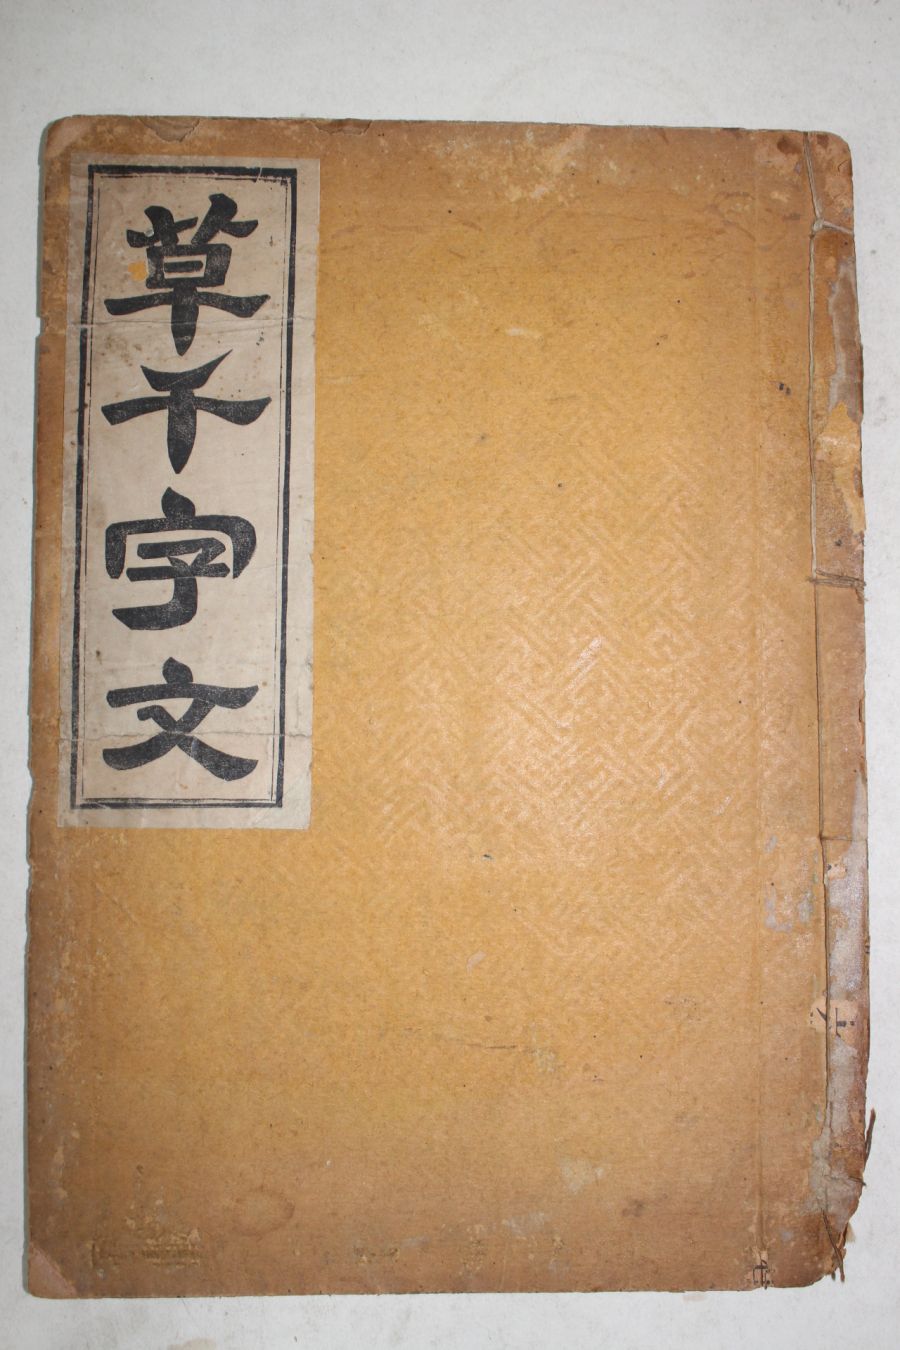 草千字文